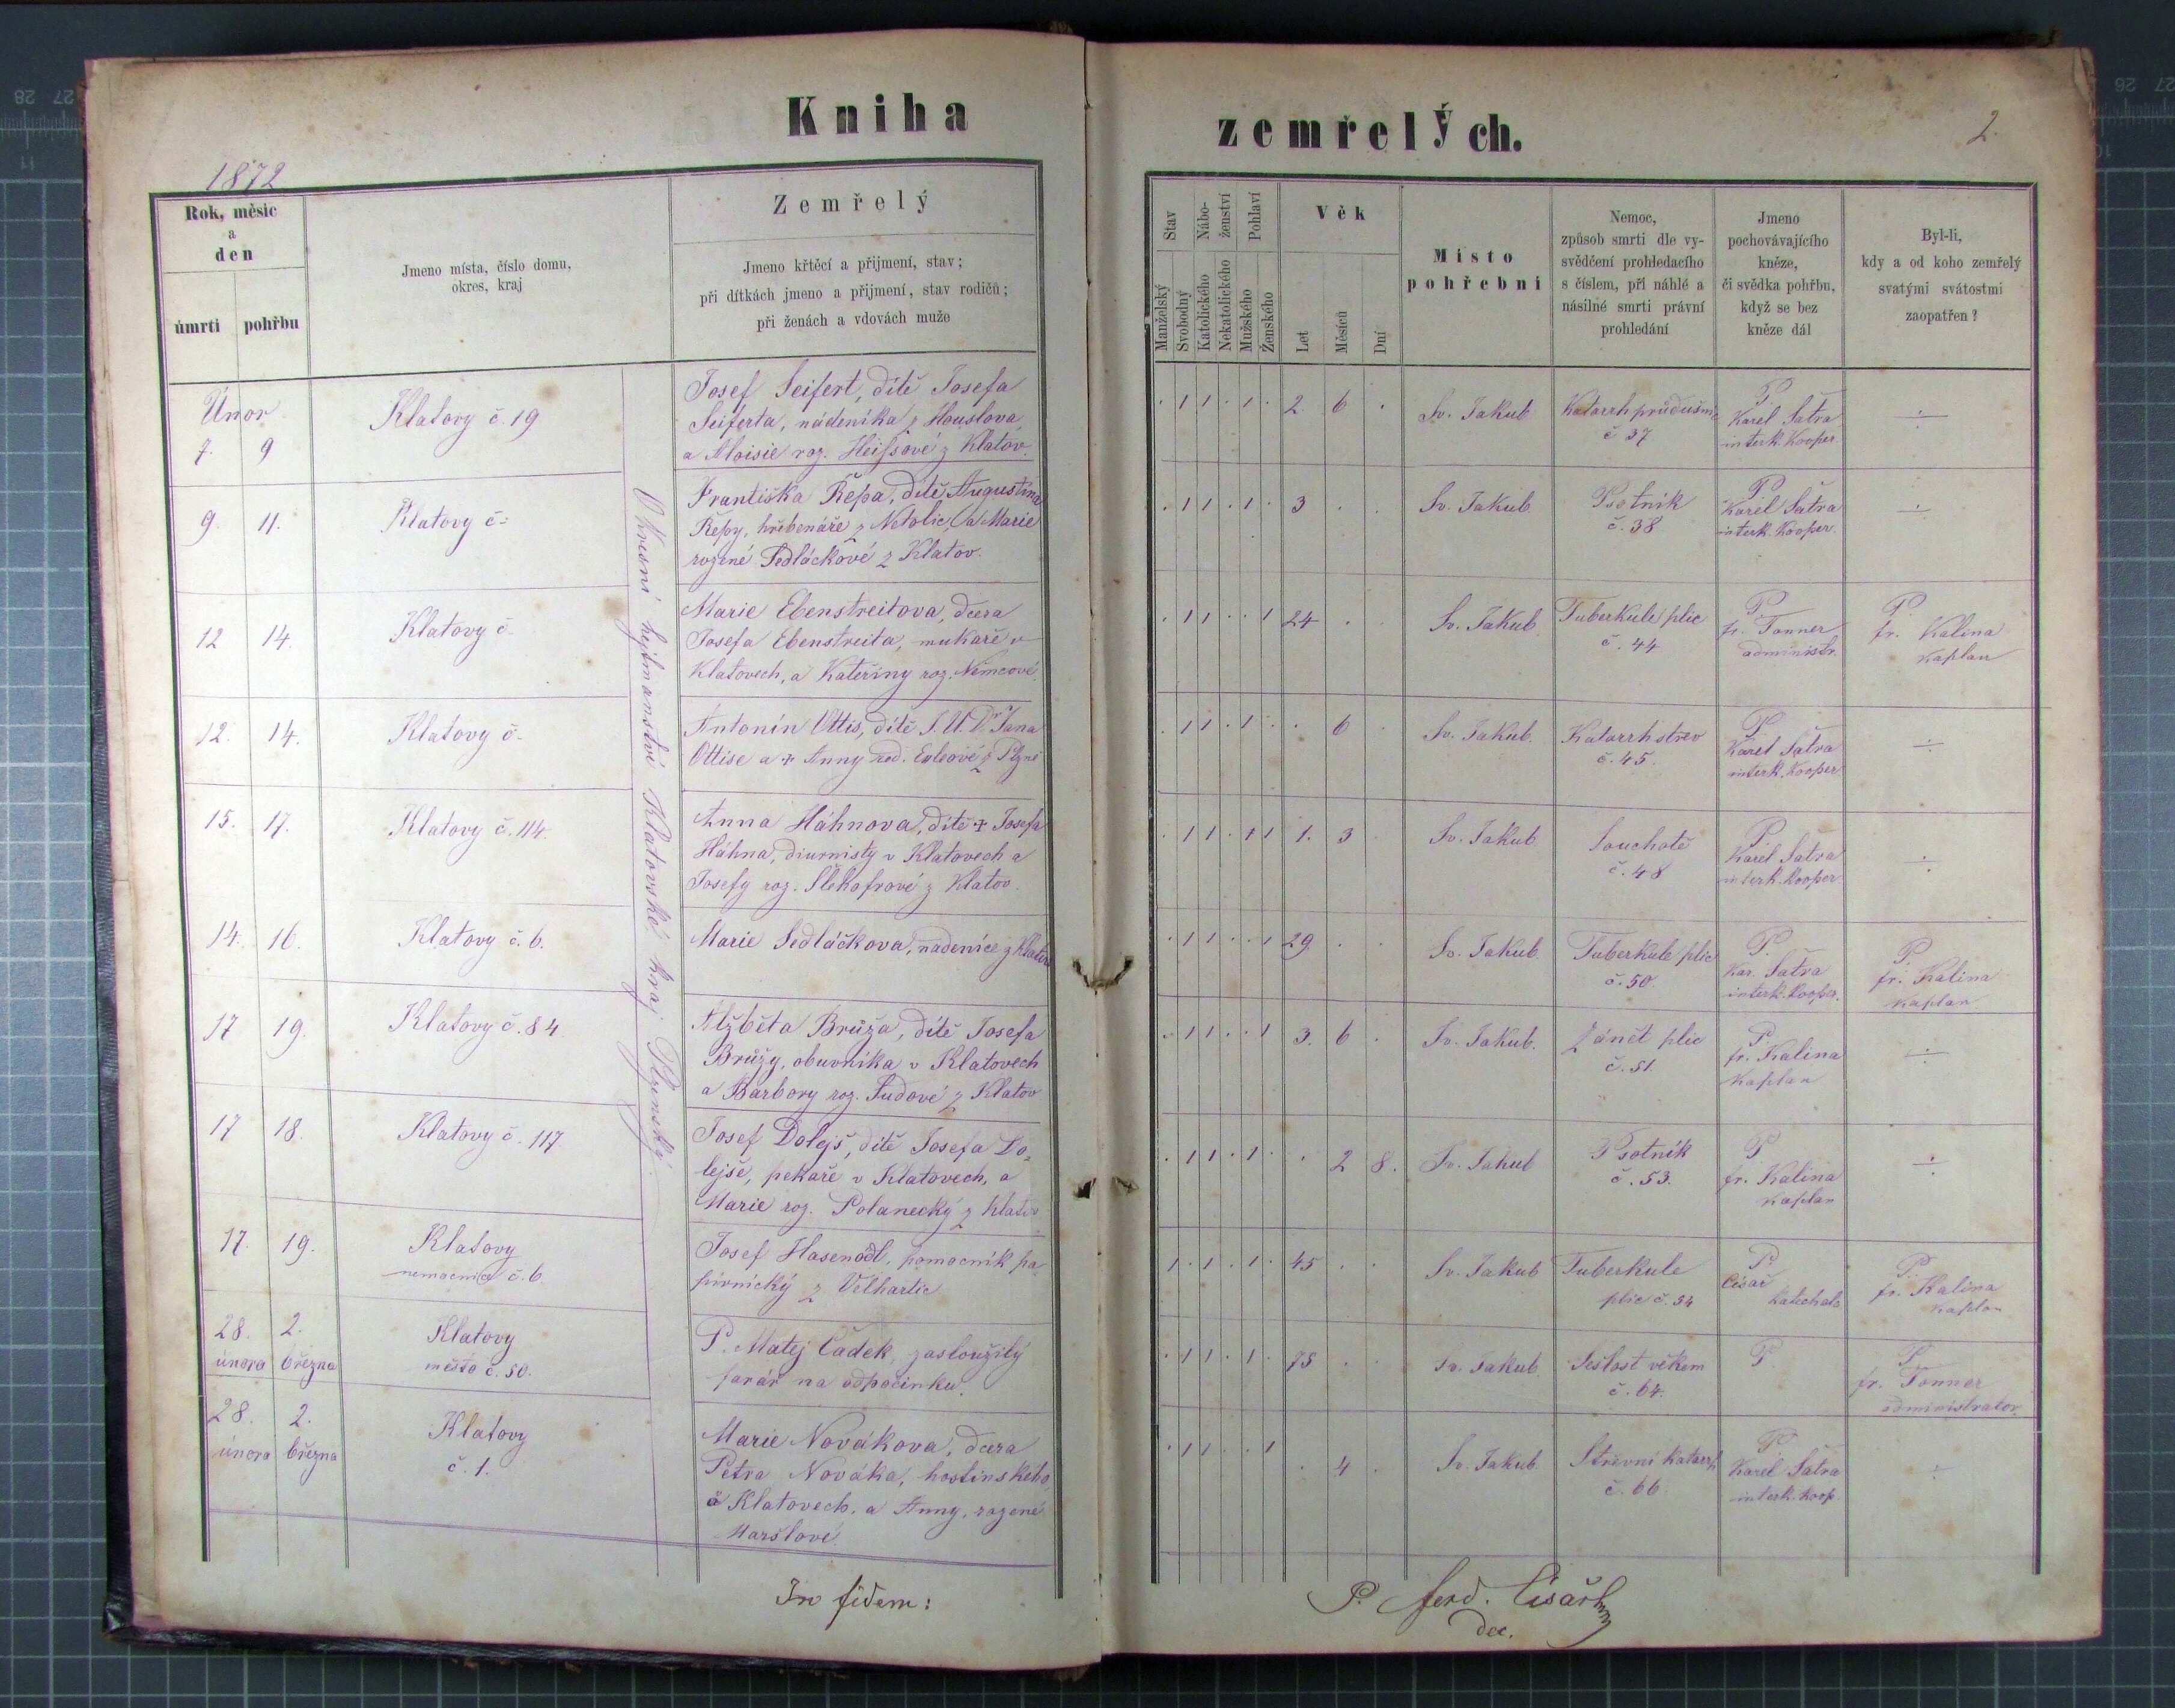 Kniha zemřelých.
2.
1872
Rok, měsíc
a
den
úmrti
pohřbu
Jmeno místa, číslo domu,
okres, kraj
Zemřelý
Jmeno křtěcí a přijmení, stav;
při dítkách jmeno a přijmení, stav rodičů;
při ženách a vdovách muže
Stav
Manželský
Svobodný
Nábo-
ženství
Katolického
Nekatolického
Pohlaví
Mužského
Ženského
Věk
Let
Měsíců
Dní
Místo
pohřební
Nemoc,
způsob smrti dle vy-
svědčení prohledacího
s číslem, při náhlé a
násilné smrti právní
prohledání
Jmeno
pochovávajícího
kněze,
či svědka pohřbu,
když se bez
kněze dál
Byl-li,
kdy a od koho zemřelý
svatými svátostmi
zaopatřen?
Okresní hejtmanství Klatovské kraj Plzenský.
Únor
7. 9
Klatovy č. 19
Josef Seifert, dítě Josefa
Seiferta, nádeníka z Houslova
a Aloisie roz. Heissové z Klatov.
. 1 1 . 1 . 2. 6 .
Sv. Jakub
Katarrh průdušn.
č 37
P.
Karel Šatra
interk. Kooper.
÷
9. 11.
Klatovy č-
Františka Řepa, dítě Augustina
Řepy, hřebenáře z Netolic a Marie
rozené Sedláčkové z Klatov.
. 1 1 . 1 . 3 . .
Sv. Jakub
Psotník
č. 38
P.
Karel Šatra
interk. Kooper.
÷
12 14.
Klatovy č-
Marie Ebenstreitova, dcera
Josefa Ebenstreita, mukaře v
Klatovech, a Kateřiny roz. Němcové.
. 1 1 . . 1 24 . .
Sv. Jakub
Tuberkule plic
č. 44
P.
fr. Tonner
administr.
P.
fr. Kalina
kaplan
12. 14.
Klatovy č-
Antonín Ottis, dítě J. U. Dr Jana
Ottise a + Anny z Plzně
. 1 1 . 1 . . 6 .
Sv. Jakub.
Katarrh střev
č. 45.
P.
Karel Šatra
interk. Kooper.
÷
15. 17.
Klatovy č. 114.
Anna Háhnova, dítě + Josefa
Háhna, diurnisty v Klatovech a
Josefy roz. z Klatov.
. 1 1 . 1 1 1. 3
Sv. Jakub.
Souchotě
č. 48
P.
Karel Šatra
interk. Kooper.
÷
14. 16.
Klatovy č. 6.
Marie Sedláčkova, nádenice z Klatov
. 1 1 . . 1 29. . .
Sv. Jakub.
Tuberkule plic
č. 50.
P.
Kar. Šatra
interk. Kooper.
P.
fr. Kalina
kaplan
17 19.
Klatovy č. 84.
Alžběta Brůža, dítě Josefa
Brůžy, obuvníka v Klatovech
a Barbory roz. Sudové z Klatov
. 1 1 . . 1 3. 6 .
Sv. Jakub.
Zánět plic
č. 51.
P.
fr. Kalina
kaplan
÷
17 18.
Klatovy č. 117.
Josef Dolejš, dítě Josefa Do-
lejše, pekaře v Klatovech, a
Marie roz. Polanecký z Klatov
. 1 1 . 1 . . 2 8.
Sv. Jakub
Psotník
č. 53.
P.
fr. Kalina
kaplan
÷
17. 19.
Klatovy
nemocnice č. 6.
Josef Hasenödl, pomocník pa-
pírnický z Velhartic
1 . 1 . 1 . 45 . .
Sv. Jakub
Tuberkule
plic č. 54
P.
Císař
P.
fr. Kalina
kaplan
28. 2.
února března
Klatovy
město č. 50.
P. Matěj Čadek, zasloužilý
farář na odpočinku.
. 1 1 . 1 . 75 . .
Sv. Jakub
Sešlost věkem
č. 64.
P.
P.
fr. Tonner
administrator.
28. 2.
února března
Klatovy
č. 1.
Marie Novákova, dcera
Petra Nováka, hostinského
v Klatovech, a Anny, rozené
Maršlové.
. 1 1 . . 1 . 4 .
Sv. Jakub.
Střevní katarrh
č. 66.
P.
Karel Šatra
interk. koop.
÷
In fidem:
P. Ferd. Císař